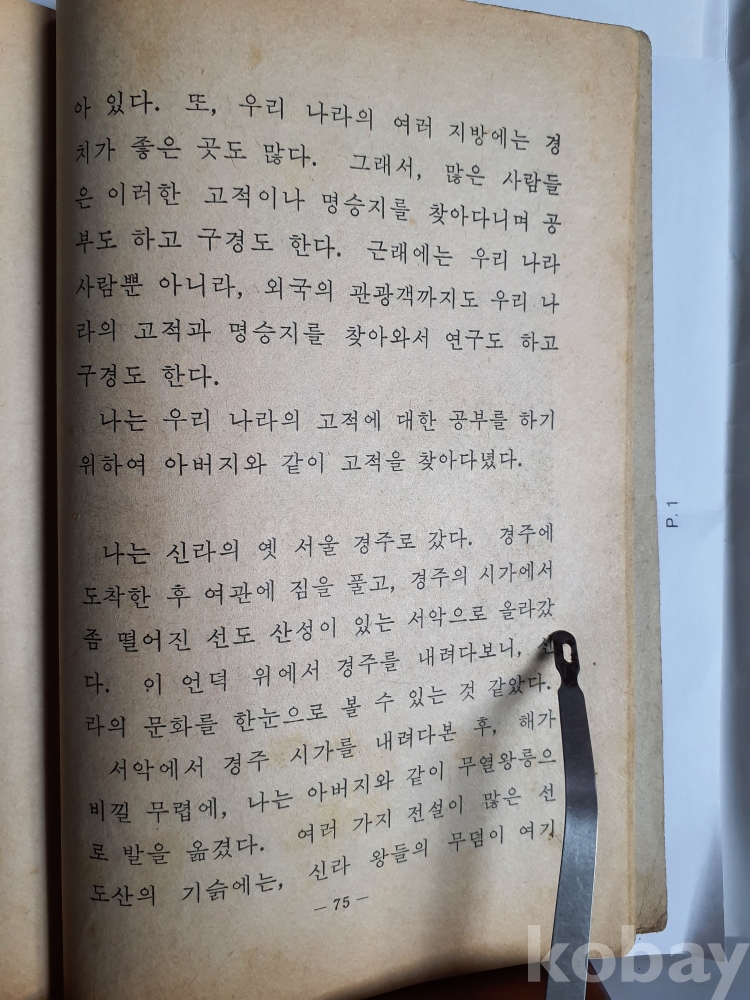 아 있다. 또, 우리 나라의 여러 지방에는 경
치가 좋은 곳도 많다. 그래서, 많은 사람들
은 이러한 고적이나 명승지를 찾아다니며 공
부도 하고 구경도 한다. 근래에는 우리 나라
사람뿐 아니라, 외국의 관광객까지도 우리 나
라의 고적과 명승지를 찾아와서 연구도 하고
구경도 한다.
나는 우리 나라의 고적에 대한 공부를 하기
위하여 아버지와 같이 고적을 찾아다녔다.
나는 신라의 옛 서울 경주로 갔다. 경주에
도착한 후 여관에 짐을 풀고, 경주의 시가에서
좀 떨어진 선도 산성이 있는 서악으로 올라갔
다. 이 언덕 위에서 경주를 내려다보니,
라의 문화를 한눈으로 볼 수 있는 것 같았다.
서악에서 경주 시가를 내려다본 후, 해가
비낄 무렵에, 나는 아버지와 같이 무열왕릉으
로 발을 옮겼다. 여러 가지 전설이 많은 선
도산의 기슭에는, 신라 왕들의 무덤이 여기
- 75 -
P. 1
kobay